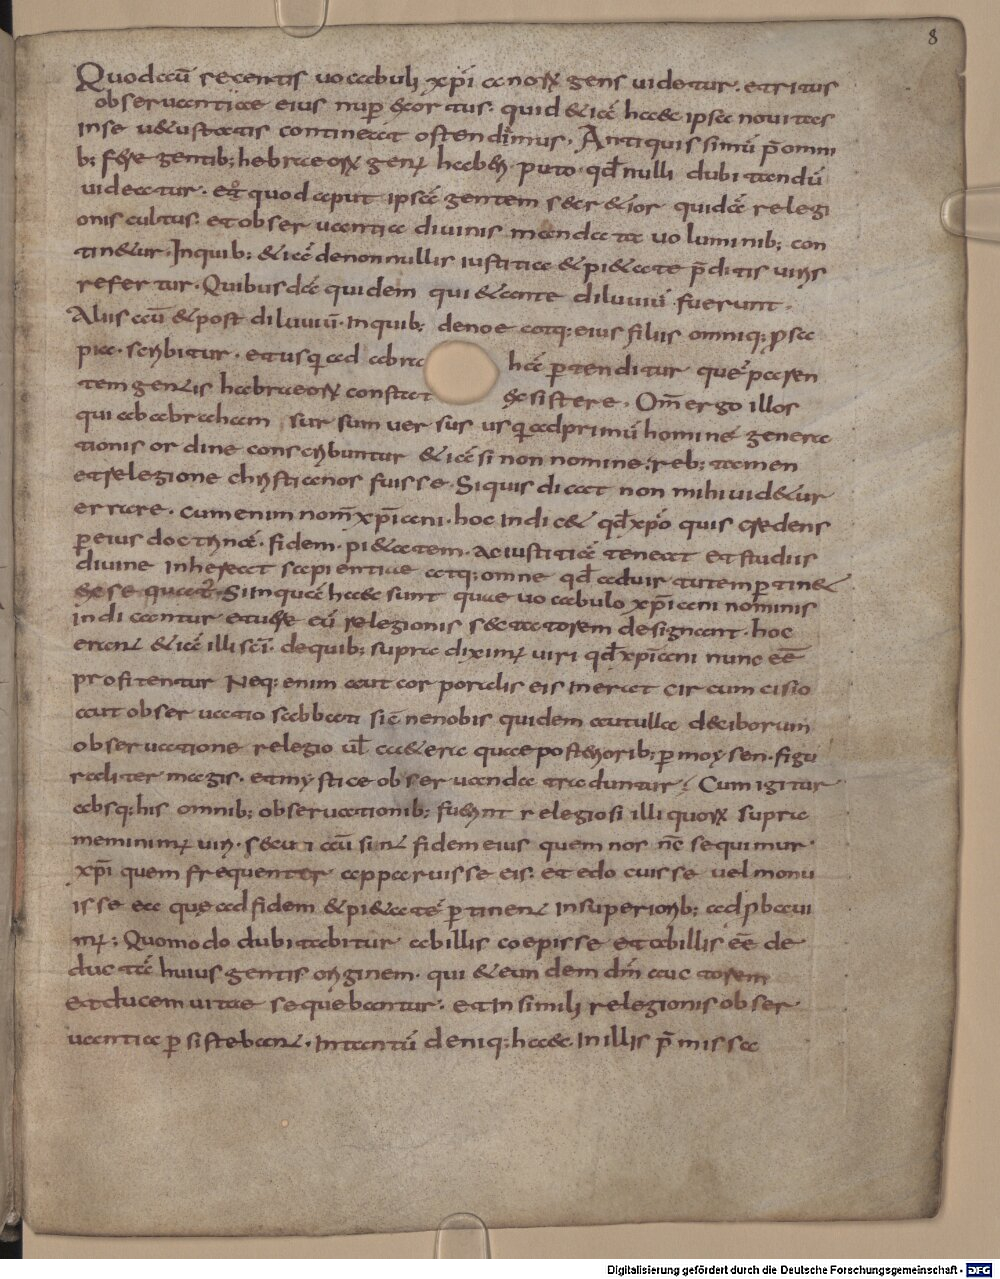 8
Quod cū recentis uocabuli xp̄i canorꝝ gens uidetur. et ritus
obseruantiae eius nuper exortus. quid etiā haec ipsa nouitas
inse uetustatis contineat ostendimus. Antiquissimū p̄omni
b; fere gentib; hebraeorꝝ genꝰ haberi puto qd̄ nulli dubitandū
uideatur. Et quod aput ipsā gentem secretior quidā relegi
onis cultus. et obseruantia diuinis mandata uoluminib; con
tinetur. Inquib; etiā denonnullis iustitiae et pietate p̄ditis uiris
refertur. Quibusdā quidem qui et ante diluuiū fuerunt.
Aliis cū et post diluuiū. Inquib; denoe atq; eius filiis omniq; prosa
pia. scribitur. et usq ad abra hā ꝑtenditur quē paren
tem generis hebraeorꝝ constat existere. Om̄ ergo illos
qui ab abraham sursum uersus usq; ad primū hominē genera
tionis ordine conscribuntur etiā si non nomine. reb; tamen
et relegione christianos fuisse. Siquis dicat non mihi uidetur
errare. cum enim nom̄ xp̄iani. hoc indicet qd̄ xp̄o quis credens
ꝑ eius doctrinā. fidem. pietatem. ac iustitiā teneat et studiis
diuine inhereat sapientiae atq; omne qd̄ ad uirtutem ꝑtinet
Si inquā haec sunt quae uocabulo xp̄iani nominis
indicantur et uere eū relegionis sectatorem designant. hoc
erant etiā illi sc̄i. dequib; supra diximꝰ uiri qd̄ xp̄iani nunc ēē
profitentur Neq; enim aut corporalis eis inerat circumcisio
aut obseruatio sabbati sic nenobis quidem aut ulla deciborum
obseruatione relegio ul̄ cetera quae posteriorib; ꝑ moysen. figu
raliter magis. et mystice obseruanda traduntur; Cum igitur
absq; his omnib; obseruationib; fuerint relegiosi illi quorꝝ supra
meminimꝰ uiri. secuti cū sint fidem eius quem nos nc̄ sequimur.
xp̄i quem frequenter apparuisse eis. et edocuisse uel monu
isse ea quę ad fidem et pietatē ꝑtinent insuperiorib; adprobaui
mꝰ; Quomodo dubitabitur ab illis coepisse et ab illis ēē de
ductā huius gentis originem. qui et eundem dm̄ auctorem
et ducem uitae sequebantur. et in simili relegionis obser
uantia ꝑsistebant. Intantū deniq; haec. Inillis p̄missa
Digitalisierung gefördert durch die Deutsche Forschungsgemeinschaft - DFG